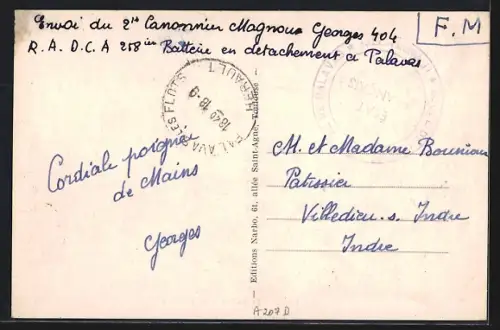 Envoi du 2e Canonnier Magnoux Georges 404
R.A.D.C.A 258ième Battrie en detachement a Palavas
F.M
PALAVAS LES FLOTS
HERAULT
18-9
1940
Cordiale poignée
de Mains
Georges
Editions Narbo, 61, allée Saint-Agne, Toulouse
M. et Madame
Patissier
Villedieu. s. Indre
Indre
A207D